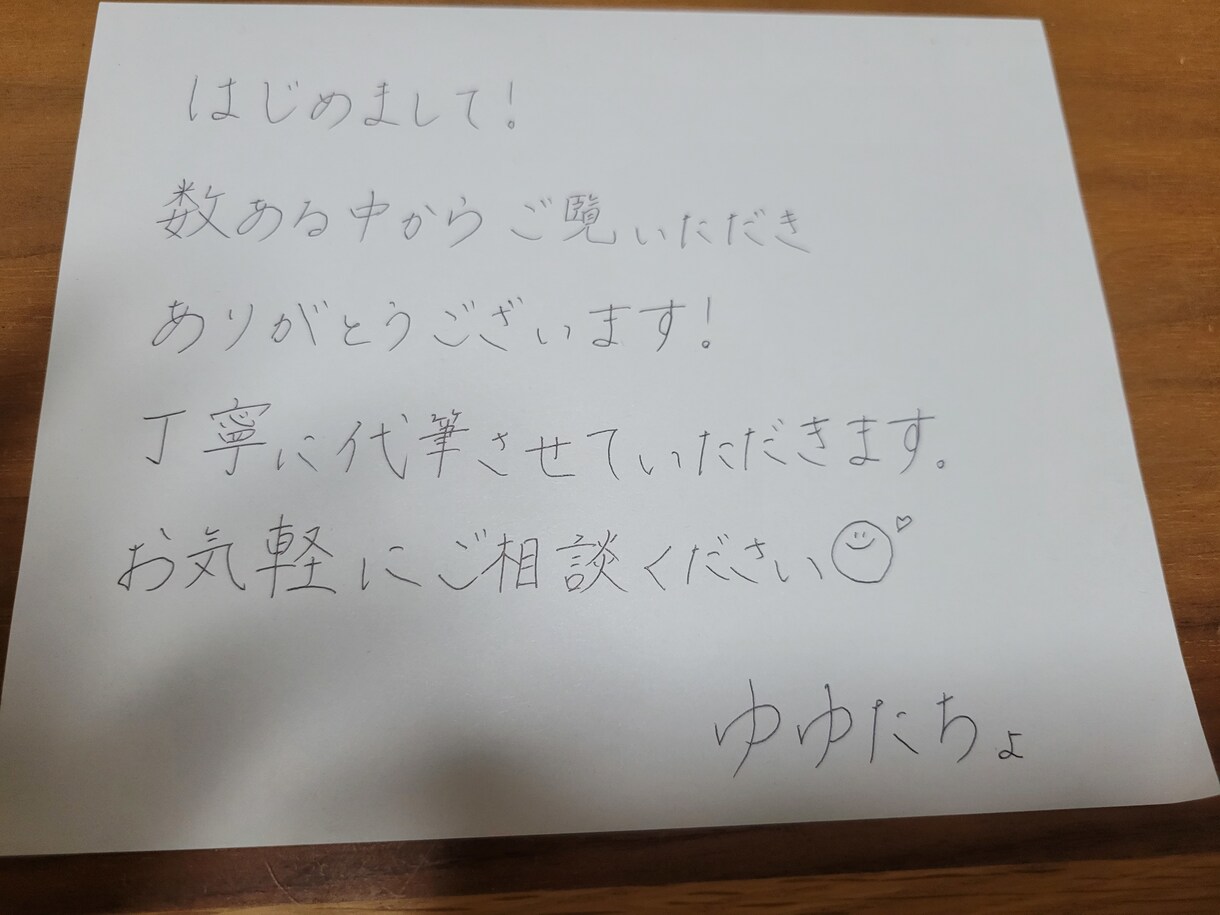 はじめまして!
数ある中からご覧いただき
ありがとうございます!
丁寧に代筆させていただきます。
お気軽にご相談ください
ゆゆたちょ